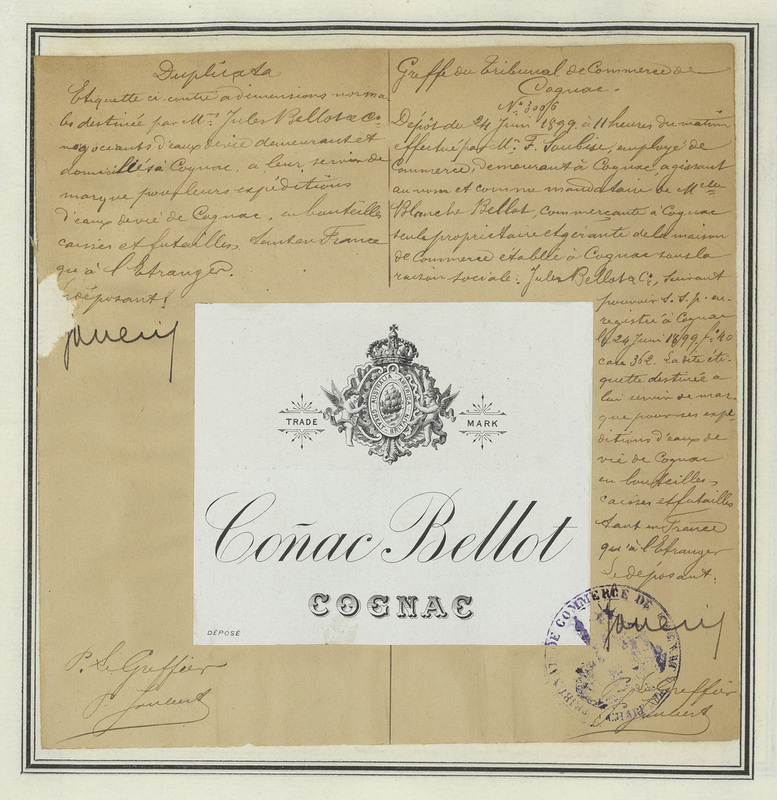 Duplicata
Etiquette ci-contre à dimensions norma
les destinée par Mrs Jules Bellot & Co
négociants d'eaux de vie demeurant et
domiciliés à Cognac, à leur servir de
marque pour leurs expéditions
d'eaux de vie de Cognac, en bouteilles
caisses et futailles, tant en France
qu'à l'Etranger.
déposant:
Greffe du Tribunal de Commerce de
Cognac.
No 3006
Dépôt du 24 Juin 1899 à 11 heures du matin
effectué par Mr. F. employé de
Commerce, demeurant à Cognac, agissant
au nom et comme mandataire de Melle
Blanche Bellot, commerçante à Cognac
seule propriétaire et gérante de la maison
de Commerce établie à Cognac sous la
raison sociale: Jules Bellot & Co, suivant
pouvoir s. s. p. en-
registré à Cognac
le 24 Juin 1899, fo 40
case 362. La dite éti-
quette destinée à
lui servir de mar-
que pour ses expé-
ditions d'eaux de
vie de Cognac
en bouteilles,
caisses et futailles
tant en France
qu'à l'Etranger
Le déposant:
AUSTRALIA AMERICA
GREAT-BRITAIN
TRADE MARK
Coñac Bellot
COGNAC
DÉPOSÉ
DE COMMERCE DE
P. Le Greffier
P. Le Greffier